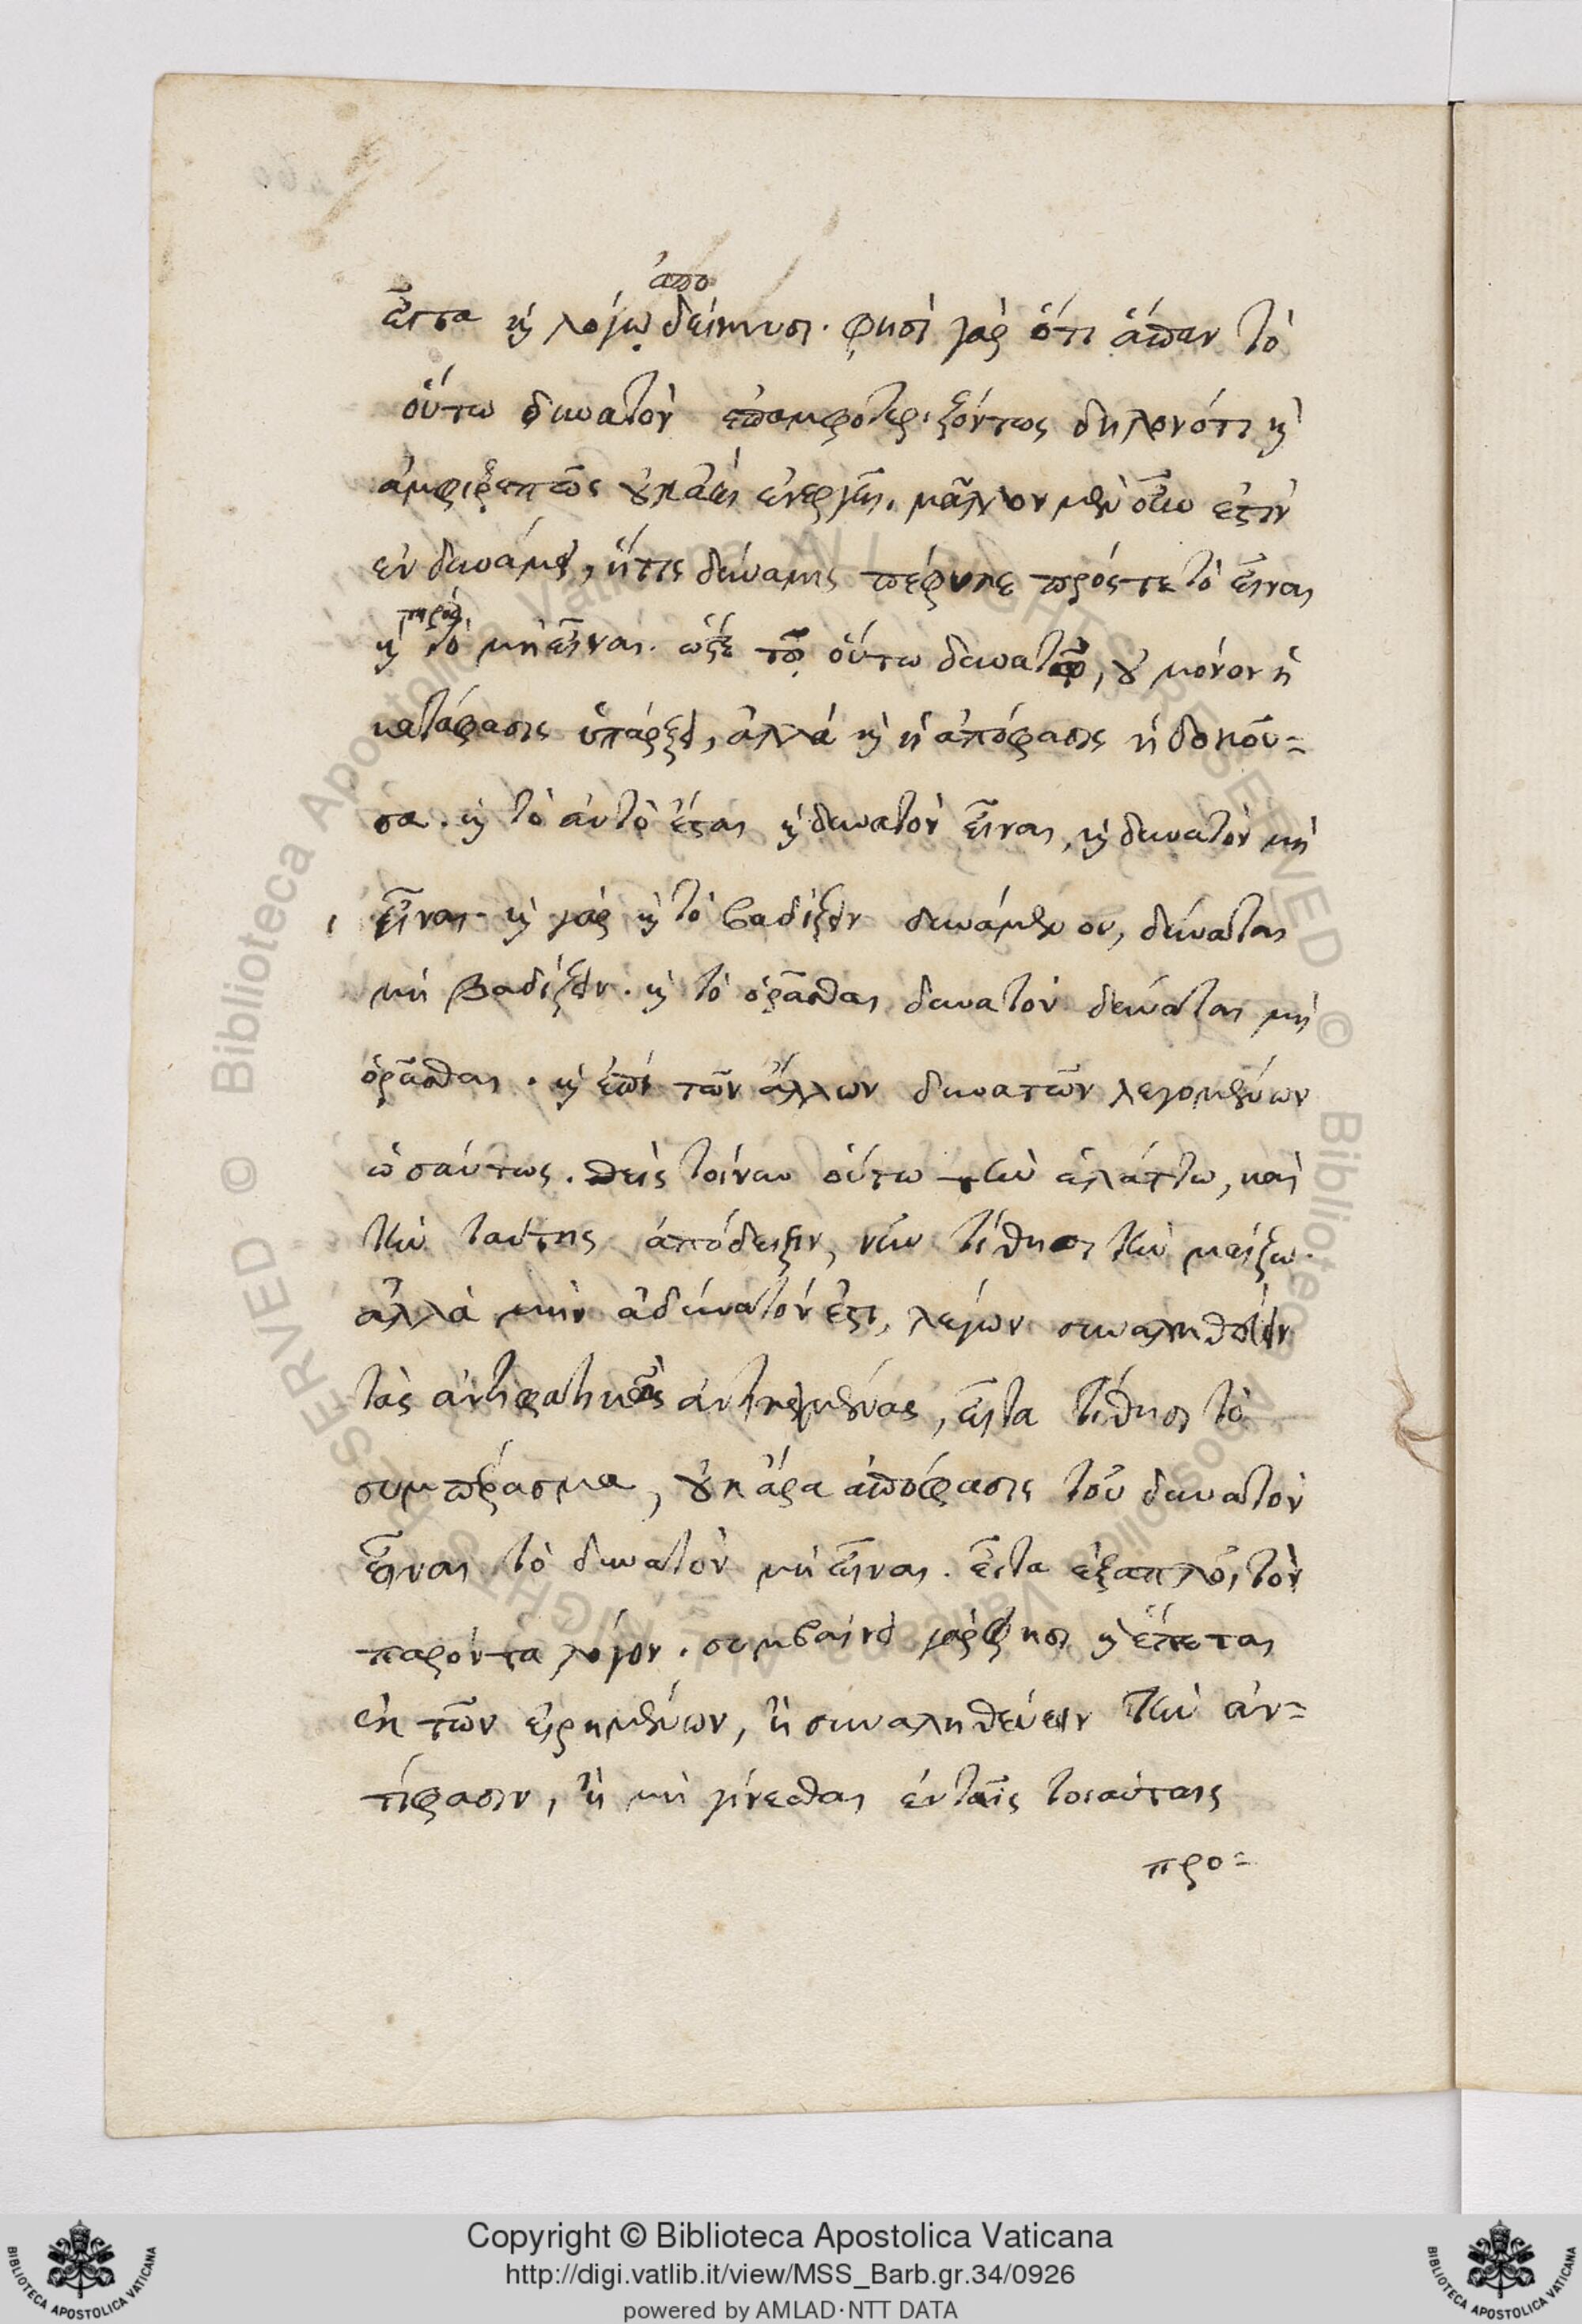 ἀπο
εἶτα καὶ λόγῳ δείκνυσι. φησὶ γὰρ ὅτι ἅπαν τὸ
οὕτω δυνατὸν ἐπαμφοτεριζόντως δηλονότι καὶ
ἀμφιῤῥεπῶς οὐκ ἀεὶ ἐνεργεῖ, μᾶλλον μὲν οὖν ἐστὶν
ἐν δυνάμει, ἥτις δύναμις πέφυκε πρός τε τὸ εἶναι
πρὸς
καὶ τὸ μὴ εἶναι. ὥστε τῷ οὕτω δυνατῷ, οὐ μόνον ἡ
κατάφασις ὑπάρξει, ἀλλὰ καὶ ἡ ἀπόφασις ἡ δοκοῦ=
σα. καὶ τὸ αὐτὸ ἔσται καὶ δυνατὸν εἶναι, καὶ δυνατὸν μὴ
εἶναι. καὶ γὰρ καὶ τὸ βαδίζειν δυνάμενον, δύναται
μὴ βαδίζειν. καὶ τὸ ὁρᾶσθαι δυνατὸν δύναται μὴ
ὁρᾶσθαι. καὶ ἐπὶ τῶν ἄλλων δυνατῶν λεγομένων
ὡσαύτως. θεὶς τοίνυν οὕτω τὴν ἐλάττω, καὶ
τὴν ταύτης ἀπόδειξιν, νῦν τίθησι τὴν μείζω.
ἀλλὰ μὴν ἀδύνατόν ἐστι, λέγων συναληθεύειν
τὰς ἀντιφατικῶς ἀντικειμένας, εἶτα τίθησι τὸ
συμπέρασμα, οὐκ ἄρα ἀπόφασις τοῦ δυνατὸν
εἶναι τὸ δυνατὸν μὴ εἶναι. εἶτα ἐξαπλοῖ τὸν
παρόντα λόγον. συμβαίνει γάρ φησι καὶ ἕπεται
ἐκ τῶν εἰρημένων, ἢ συναληθεύειν τὴν ἀν=
τίφασιν, ἢ μὴ γίνεσθαι ἐν ταῖς τοιαύταις
προ=
Copyright © Biblioteca Apostolica Vaticana
http://digi.vatlib.it/view/MSS_Barb.gr.34/0926
powered by AMLAD·NTT DATA